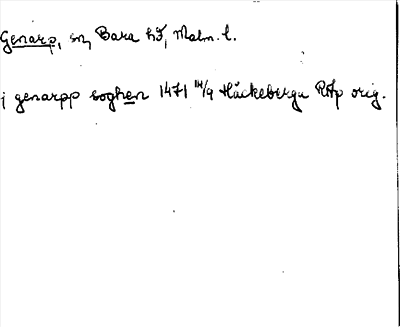 Genarp, sn, Bara hd, Malm. l.
j genarpp soghen 1471 14/9 Häckeberga RAp orig.